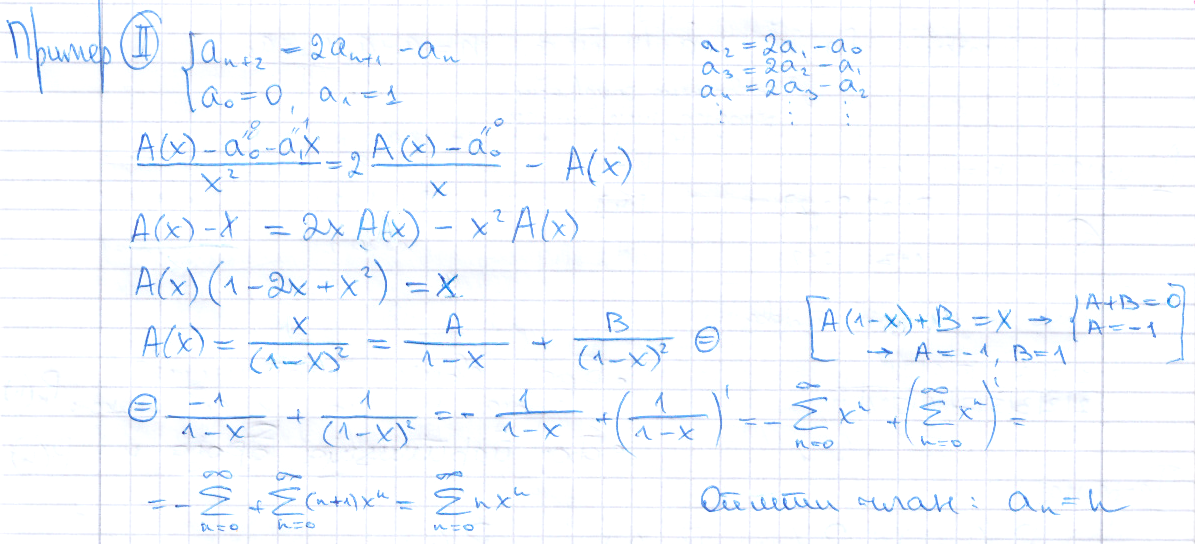 Пример II { a_{n+2} = 2a_{n+1} - a_n
a_0 = 0, a_1 = 1
a_2 = 2a_1 - a_0
a_3 = 2a_2 - a_1
a_4 = 2a_3 - a_2
⋮ ⋮ ⋮
(A(x) - a_0 - a_1 x)/x^2 = 2 (A(x) - a_0)/x - A(x)
0 1 0
A(x) - x = 2x A(x) - x^2 A(x)
A(x)(1 - 2x + x^2) = x
A(x) = x/(1-x)^2 = A/(1-x) + B/(1-x)^2 ⊜
[A(1-x) + B = x → { A+B = 0
A = -1
→ A = -1, B = 1]
⊜ -1/(1-x) + 1/(1-x)^2 = - 1/(1-x) + (1/(1-x))' = - ∑_{n=0}^∞ x^n + (∑_{n=0}^∞ x^n)' =
= - ∑_{n=0}^∞ + ∑_{n=0}^∞ (n+1)x^n = ∑_{n=0}^∞ n x^n
член: a_n = n